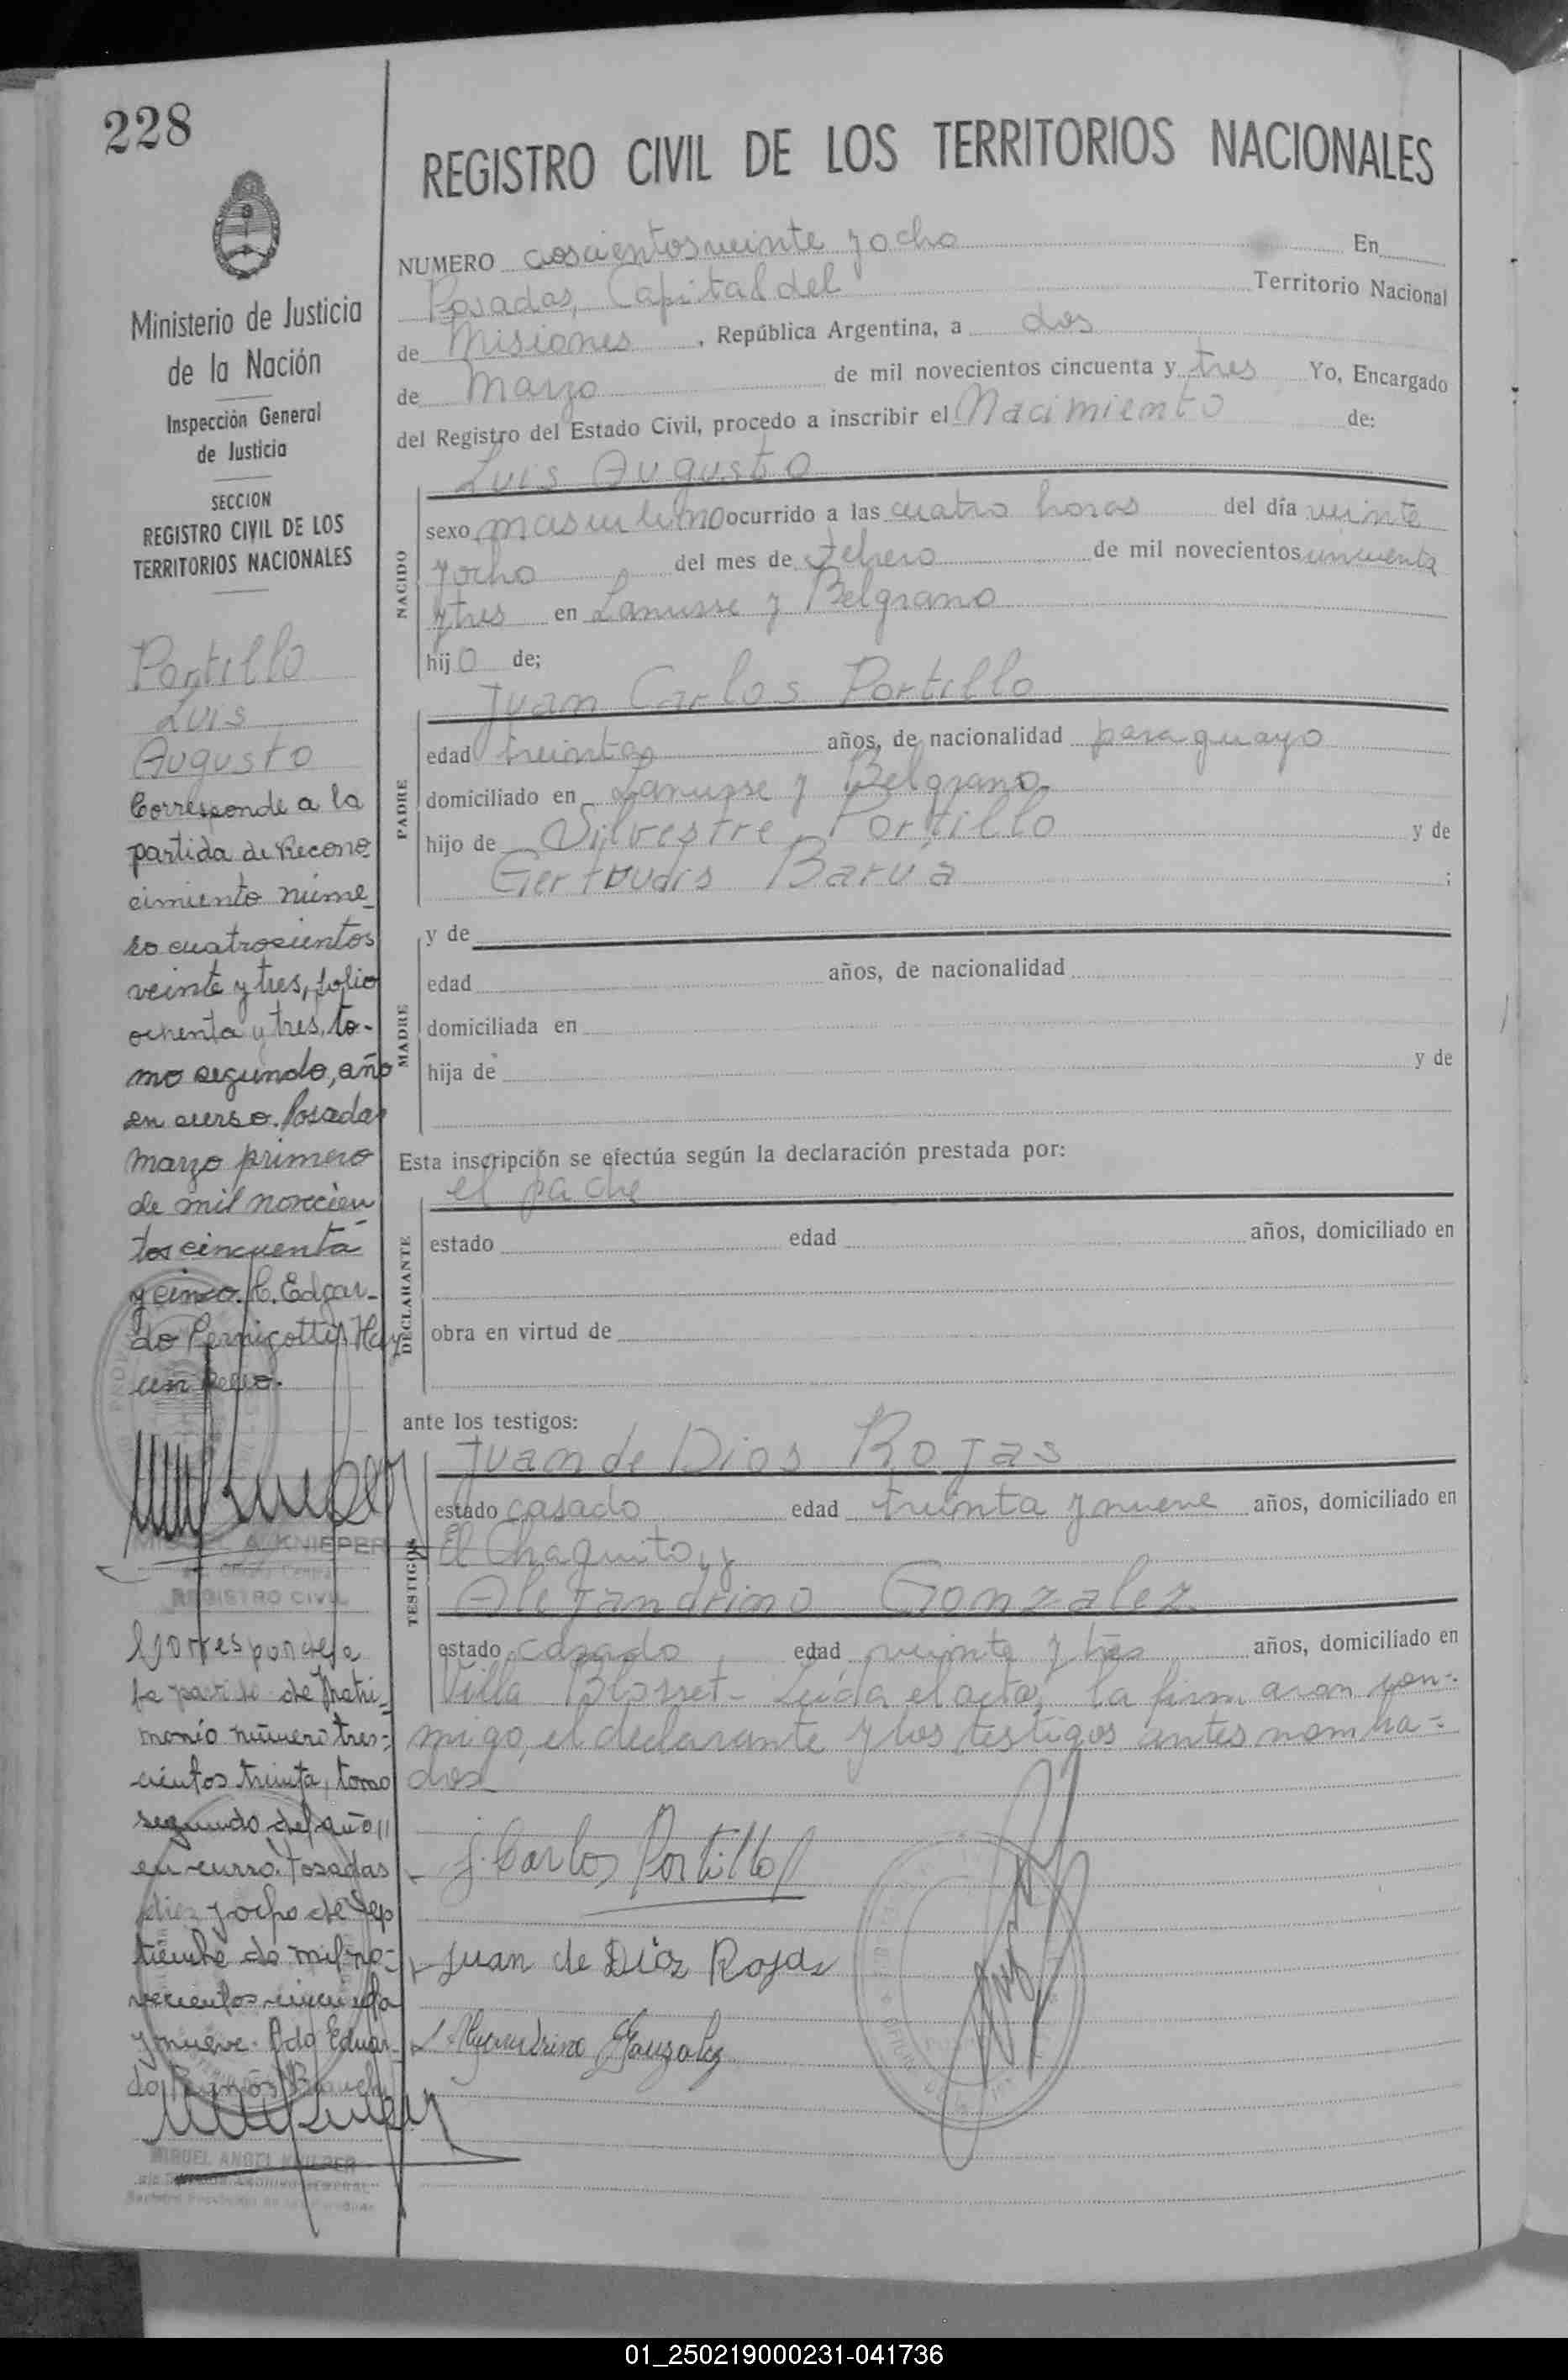 228
Ministerio de Justicia
de la Nación
Inspección General
de Justicia
SECCION
REGISTRO CIVIL DE LOS
TERRITORIOS NACIONALES
Portillo
Luis
Augusto
Corresponde a la
partida de Recono
cimiento núme_
ro cuatrocientos
veinte y tres, folio
ochenta y tres, to-
mo segundo, año
en curso. Posadas
marzo primero
de mil novecien
tos cincuenta
y cinco. C. Edgar-
do Pernigotti. Hay
un sello.
A. KNIEPER
REGISTRO CIVIL
Corresponde a
la partida de Matri_
monio número tres-
cientos treinta, tomo
segundo del año
en curso. Posadas
diez y ocho de Sep
tiembre de mil no-
vecientos cincuenta
y nueve. Fdo Eduar_
do Ramós
MIGUEL ANGEL KNIEPER
REGISTRO CIVIL DE LOS TERRITORIOS NACIONALES
NUMERO doscientos veinte y ocho En
Posadas, Capital del Territorio Nacional
de Misiones, República Argentina, a dos
de Marzo de mil novecientos cincuenta y tres Yo, Encargado
del Registro del Estado Civil, procedo a inscribir el Nacimiento de:
Luis Augusto
NACIDO
sexo masculino ocurrido a las cuatro horas del día veinte
y ocho del mes de febrero de mil novecientos cincuenta
y tres en Lanusse y Belgrano
hijo de;
Juan Carlos Portillo
PADRE
edad treinta años, de nacionalidad paraguayo
domiciliado en Lanusse y Belgrano
hijo de Silvestre Portillo y de
Gertrudis Barúa ;
y de
MADRE
edad años, de nacionalidad
domiciliada en
hija de y de
Esta inscripción se efectúa según la declaración prestada por:
el padre
DECLARANTE
estado edad años, domiciliado en
obra en virtud de
ante los testigos:
Juan de Dios Rojas
TESTIGOS
estado casado edad treinta y nueve años, domiciliado en
El Chaquito, y
Alejandrino Gonzalez
estado casado edad veinte y tres años, domiciliado en
Villa Blosset - Leída el acta, la firmaron con-
migo, el declarante y los testigos antes nombra-
dos
J. Carlos Portillo
Juan de Dios Rojas
Alejandrino Gonzalez
01_250219000231-041736